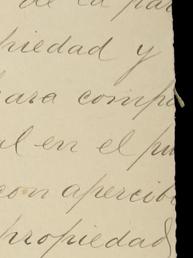 de la par
piedad y
para comp
al en el pu
con apercib
propiedad